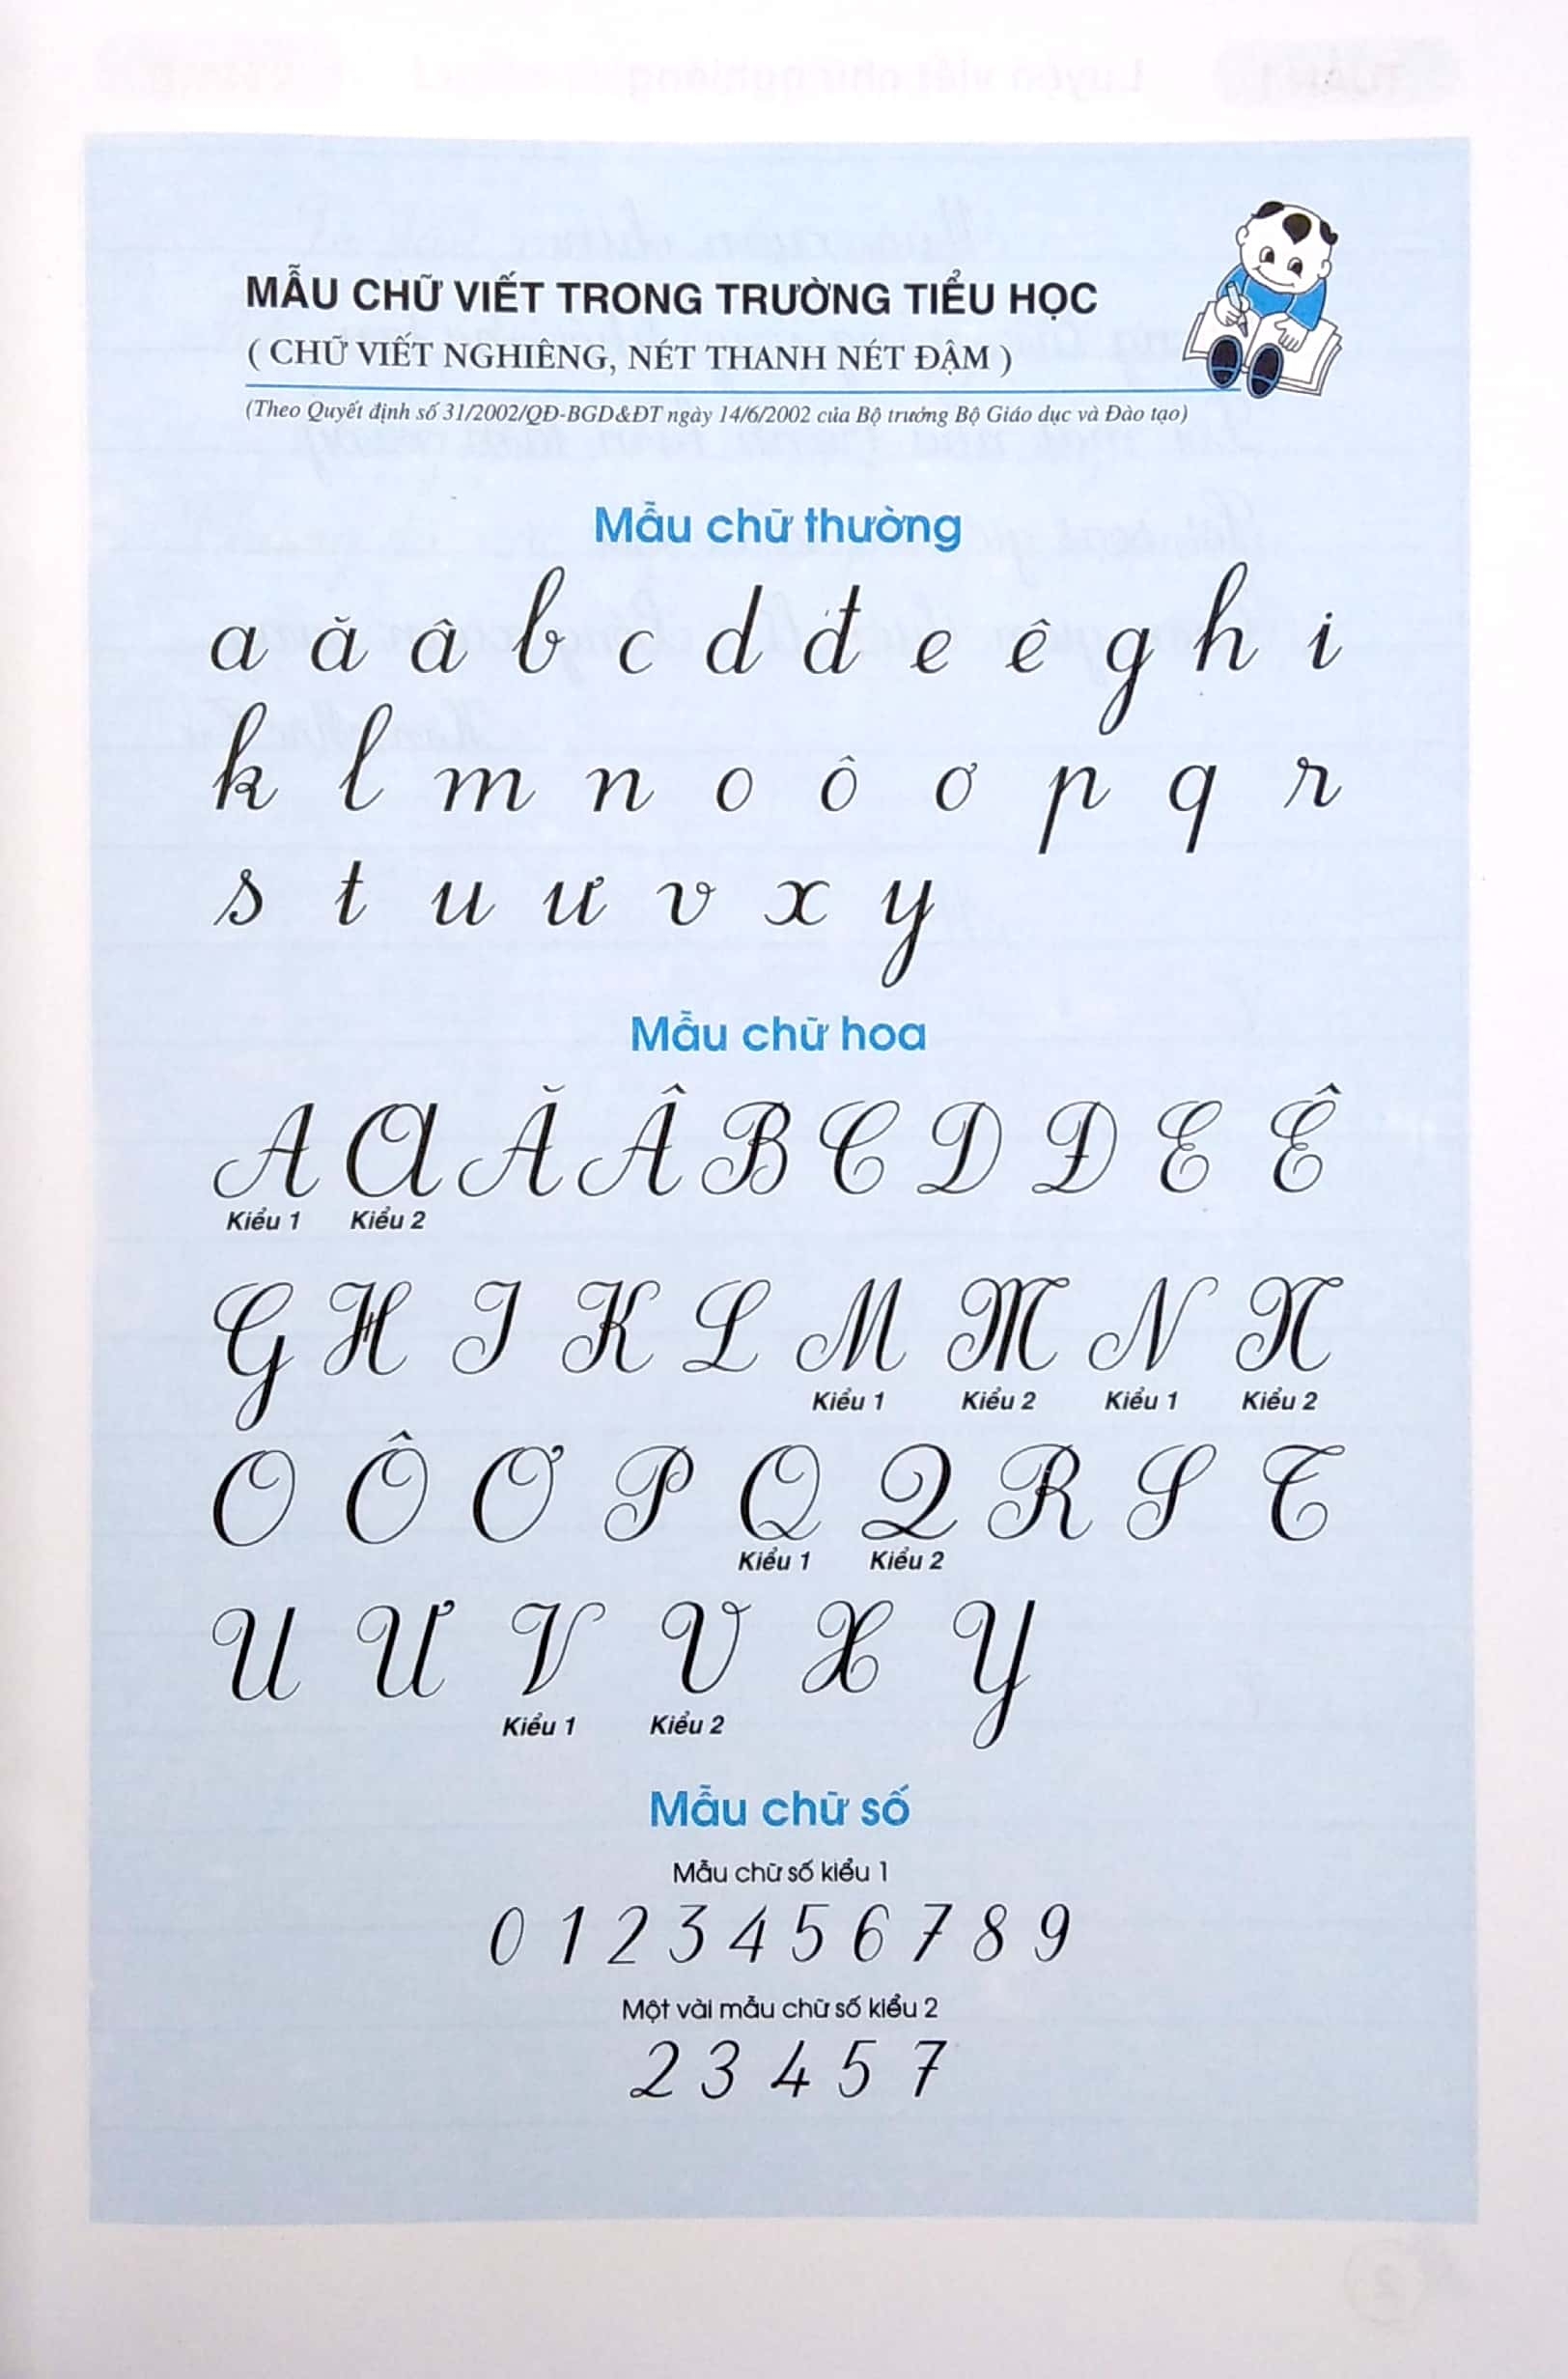 MẪU CHỮ VIẾT TRONG TRƯỜNG TIỂU HỌC
( CHỮ VIẾT NGHIÊNG, NÉT THANH NÉT ĐẬM )
(Theo Quyết định số 31/2002/QĐ-BGD&ĐT ngày 14/6/2002 của Bộ trưởng Bộ Giáo dục và Đào tạo)
Mẫu chữ thường
a ă â b c d đ e ê g h i
k l m n o ô ơ p q r
s t u ư v x y
Mẫu chữ hoa
A A Ă Â B C D Đ E Ê
Kiểu 1 Kiểu 2
G H I K L M M N N
Kiểu 1 Kiểu 2 Kiểu 1 Kiểu 2
O Ô Ơ P Q Q R S T
Kiểu 1 Kiểu 2
U Ư V V X Y
Kiểu 1 Kiểu 2
Mẫu chữ số
Mẫu chữ số kiểu 1
0 1 2 3 4 5 6 7 8 9
Một vài mẫu chữ số kiểu 2
2 3 4 5 7